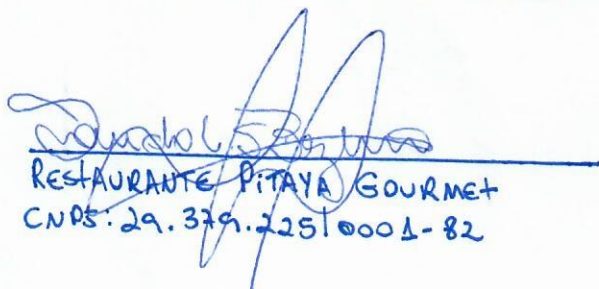 RESTAURANTE PITAYA GOURMET
CNPJ: 29.379.225/0001-82